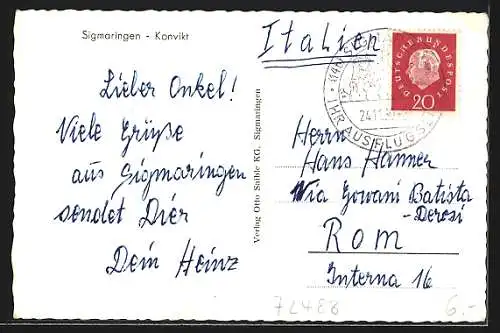 Sigmaringen - Konvikt
Lieber Onkel!
Viele Grüße
aus Sigmaringen
sendet Dier
Dein Heinz
Verlag Otto Suible KG, Sigmaringen
Italien
DEUTSCHE BUNDESPOST
20
IHR AUSFLUGS
24.11.
Herrn
Hans Hanner
Via Gowani Batista
-Derosi
Rom
Interna 16
72488
6.-